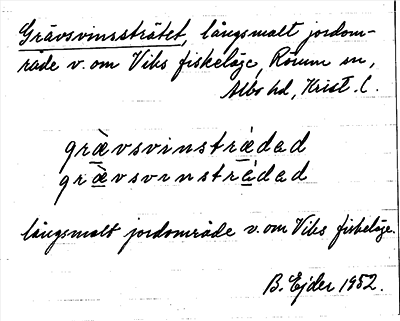 Grävsvinsstrátet, långsmalt jordom-
råde v. om Viks fiskeläge, Rörum sn,
Albo hd, Krist. l.
grävsvinstrádad
grävsvinstrádad
långsmalt jordområde v. om Viks fiskeläge.
B. Ejder 1952.